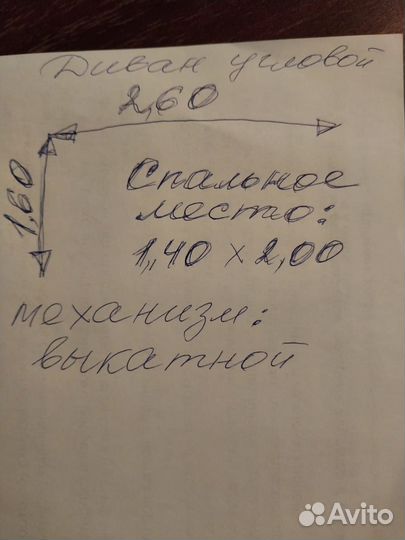 Диван угловой
2,60
1,60
Спальное
место:
1,40 х 2,00
механизм:
выкатной
Avito